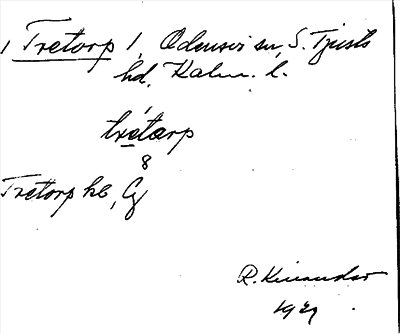 1 Tretorp 1, Odensvi sn, S. Tjusts
hd. Kalm. l.
tretårp
8
Tretorp he, Cg
R. Kinander
1929